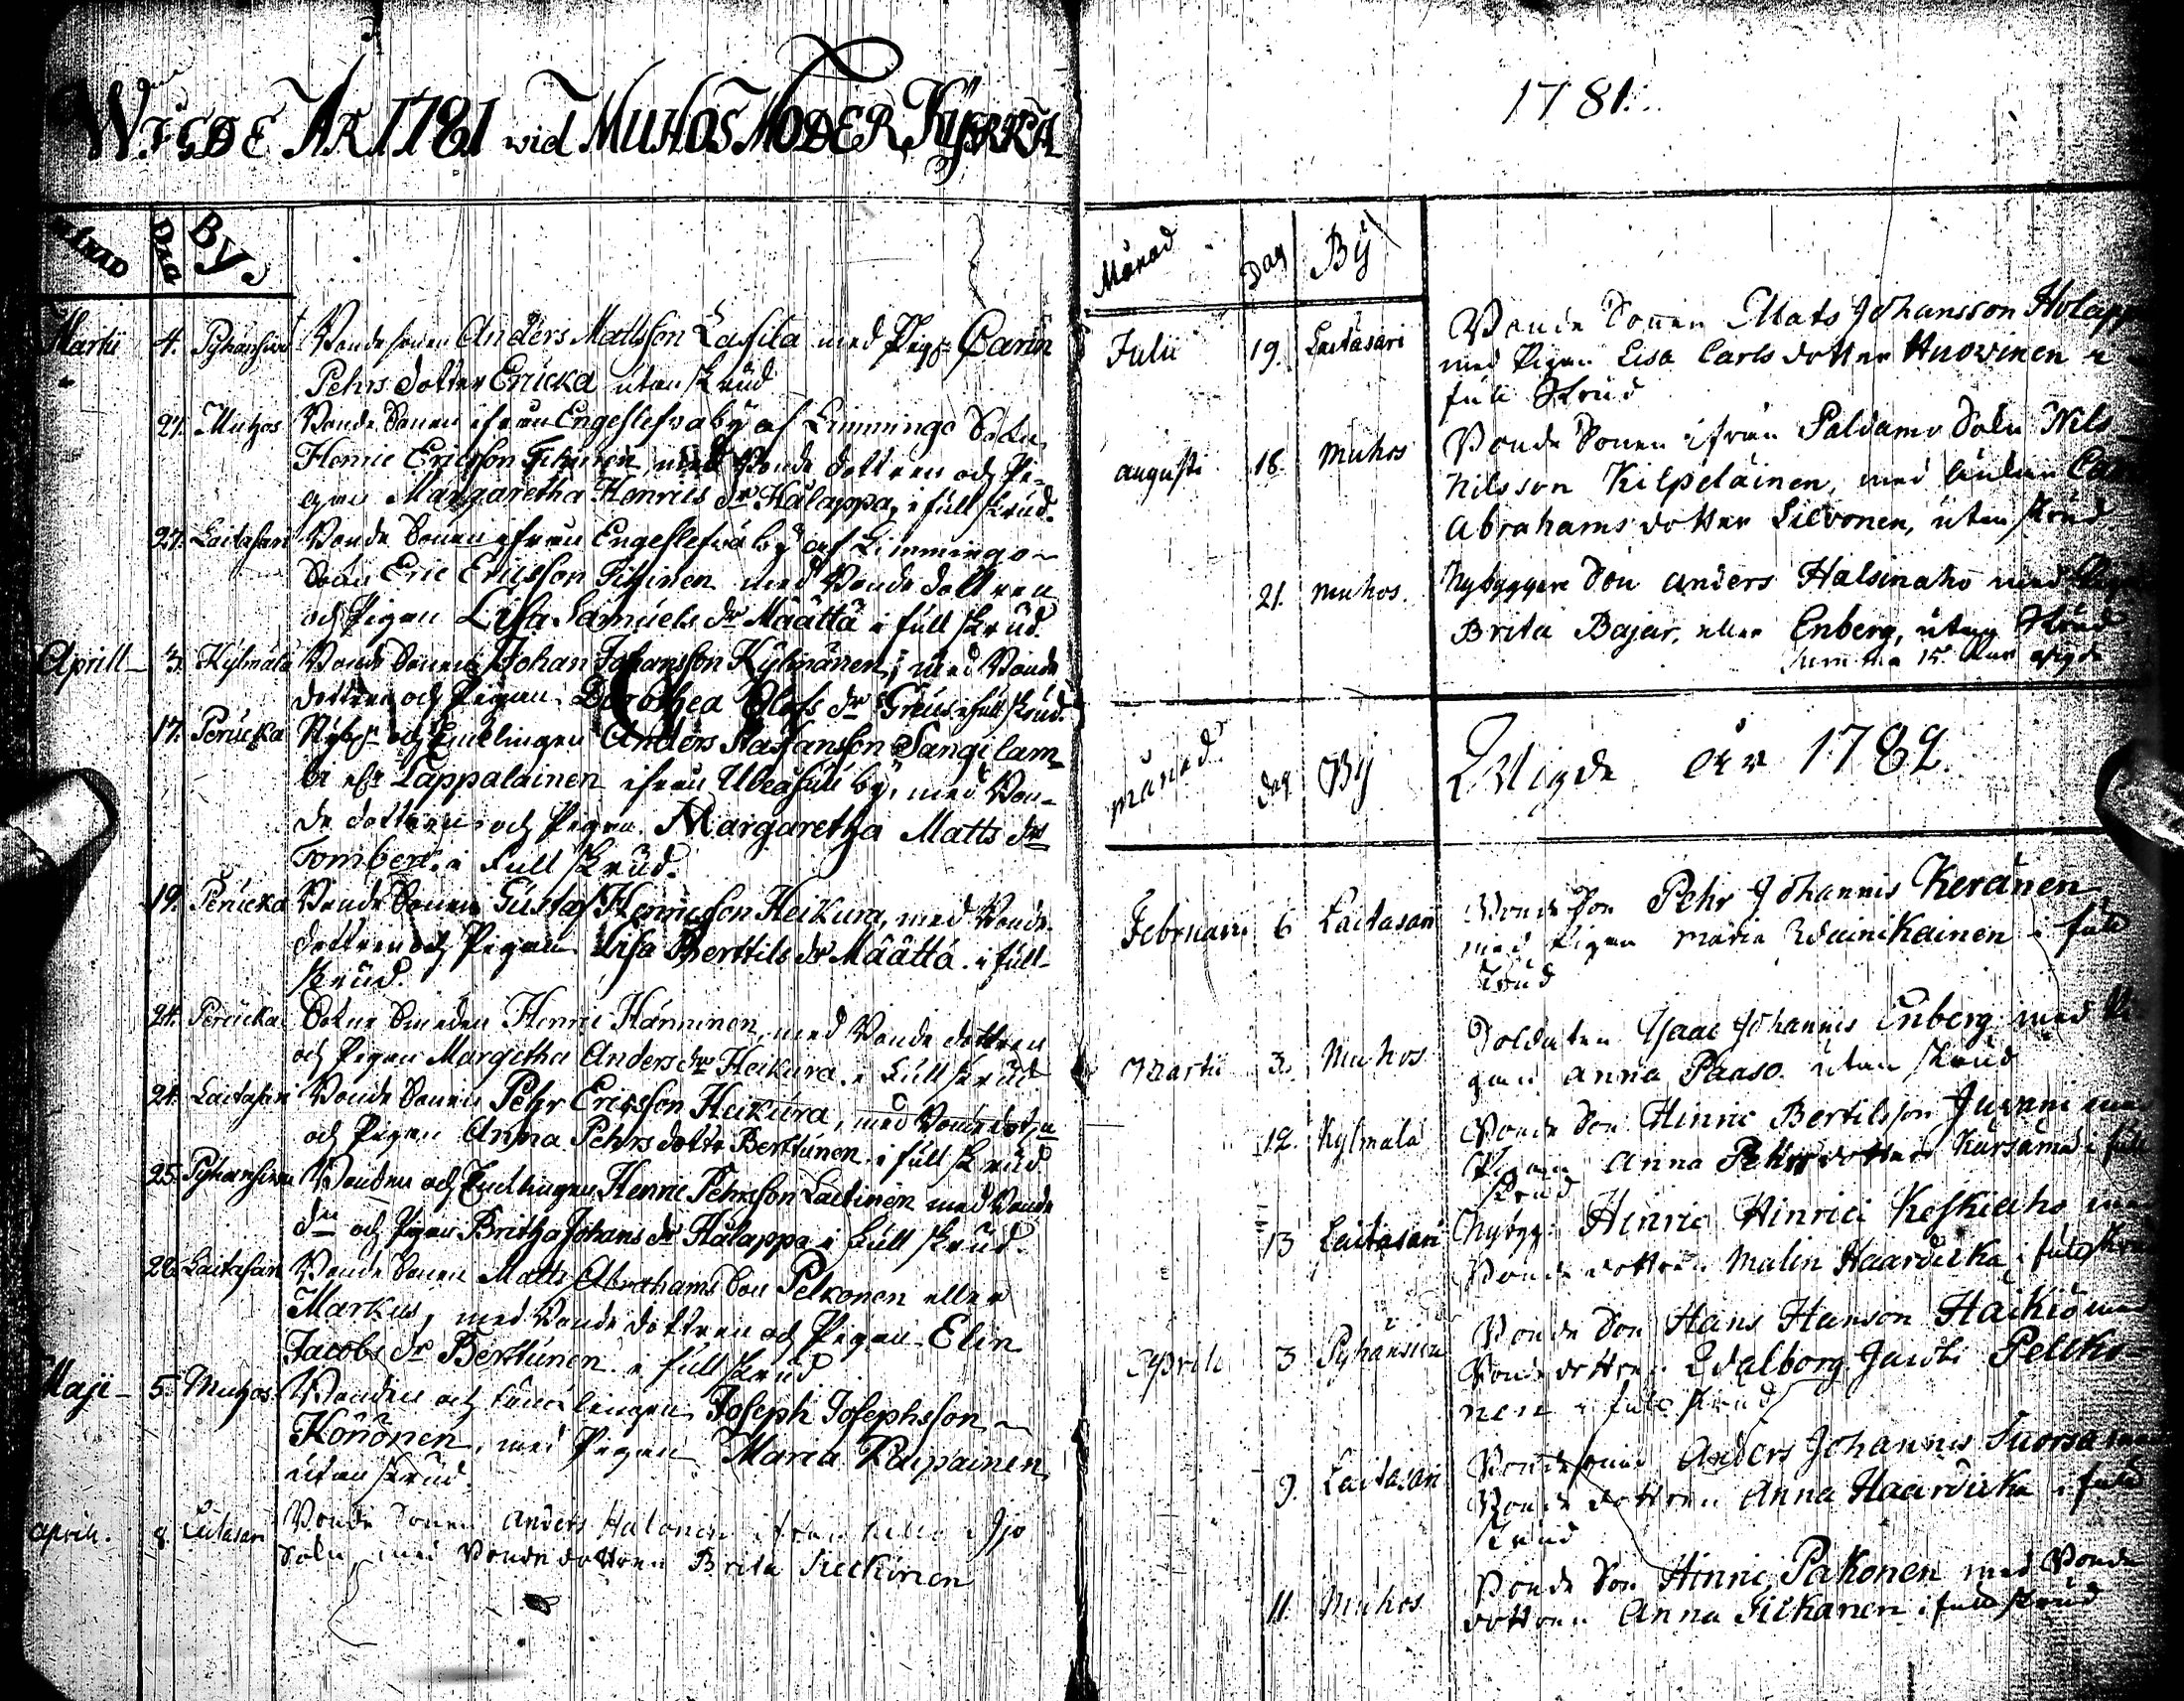 WIGDE ÅR 1781 wid MUHOS MODER KYRKA
MÅNAD DAG By.
Martii 4. Pyhänsivu Bonde sonen Anders Mattsson Lassila med Pig: Carin
Pehrs dotter Ericka utan skrud
27. Muhos Bonde Sonen ifrån Engeslefvä by af Limmingo Sokn
Henric Ericsson Tihinen med Bonde dottren och Pi-
gan Margaretha Henrics dr Halappa, i full skrud.
27. Laitasari Bonde Sonen ifrån Engeslefvä by af Limmingo
Sokn Eric Ericsson Tihinen med Bonde dottren
och Pigan Lisa Samuels dr Määttä i full skrud.
Aprill 3. Kylmälä Bonde Sonen Johan Johansson Kylmänen, med Bonde
dottren och Pigan Dorothea Olofs dr Greus i full skrud.
17. Pericka Nybr och Enklingen Anders Staffansson Sangilam-
bi elr Lappalainen ifrån Uleåsuu by, med Bon-
de dottren och Pigan Margaretha Matts dr
Tomberi i full skrud.
19. Pericka Bonde Sonen Gustaf Henricsson Heikura, med Bonde
dottren och Pigan Lisa Berttils dr Määttä i full
skrud.
24. Pericka Sokne Smeden Henric Hänninen, med Bonde dottren
och Pigan Margetha Anders dr Heikura i full skrud
24. Laitasari Bonde Sonen Pehr Ericsson Heikura, med Bonde
och Pigan Anna Pehrs dottr Berttunen i full skrud
25. Pyhänsivu Bonden och Enklingen Henric Pehrsson Laitinen med Bonde
dn och Pigan Britha Johans dr Halappa i full skrud.
26. Laitasari Bonde Sonen Matts Abrahams Son Pelkonen eller
Markus, med Bonde dottren och Pigan Elin
Jacobs dr Berttunen i full skrud
Maji 5. Muhos Bonden och Enklingen Joseph Josephsson
Könönen, med Pigan Maria Kaipainen,
utan skrud.
April. 8. Laitasari Bonde Sonen Anders Halonen ifrån i Ijo
Sokn med Bonde dottren Brita
1781.
Månad Dag By
Julii 19. Laitasari Bonde Sonen Mats Johansson Holapp
med Pigan Lisa Carls dotter Huovinen i
full Skrud
augusti 18. Muhos Bonde Sonen ifrån Paldamo Sokn Nils
Nilsson Kilpeläinen, med Enkan
Abrahams dotter Silvonen, utan skrud.
21. Muhos. Nybyggare Son Anders Halsinaho med
Brita Bajar, eller Enberg, utan Skrud
Summa 15. Par wigde
månad dag By Wigde åhr 1782.
Februarii 6 Laitasari Bonde Son Pehr Johannis Keränen
med Pigan Maria Wainikainen i full
Skrud
Martii 3. Muhos Soldaten Isaac Johannis Enberg med Pi
gan Anna Paaso utan skrud
12. Kylmälä Bonde Son Hinric Bertilsson Juvani med
Pigan Anna Pehrs dotter Kursama i full
skrud
13 Laitasari Nybygg: Hinric Hinrici Keskiaho med
Bonde dottren Malin Haardicka i full skrud
Aprili 3 Pyhänsivu Bonde Son Hans Hanson Haikiö med
Bonde dottren Walborg Jacobi Pelko-
nen i full skrud
9. Laitasari Bonde sonen Anders Johannis Suorsa med
Bonde dottren Anna Haardicka i full
skrud
11. Muhos Bonde Son Hinric Pakonen med Bonde
dottren Anna Tickanen i full skrud